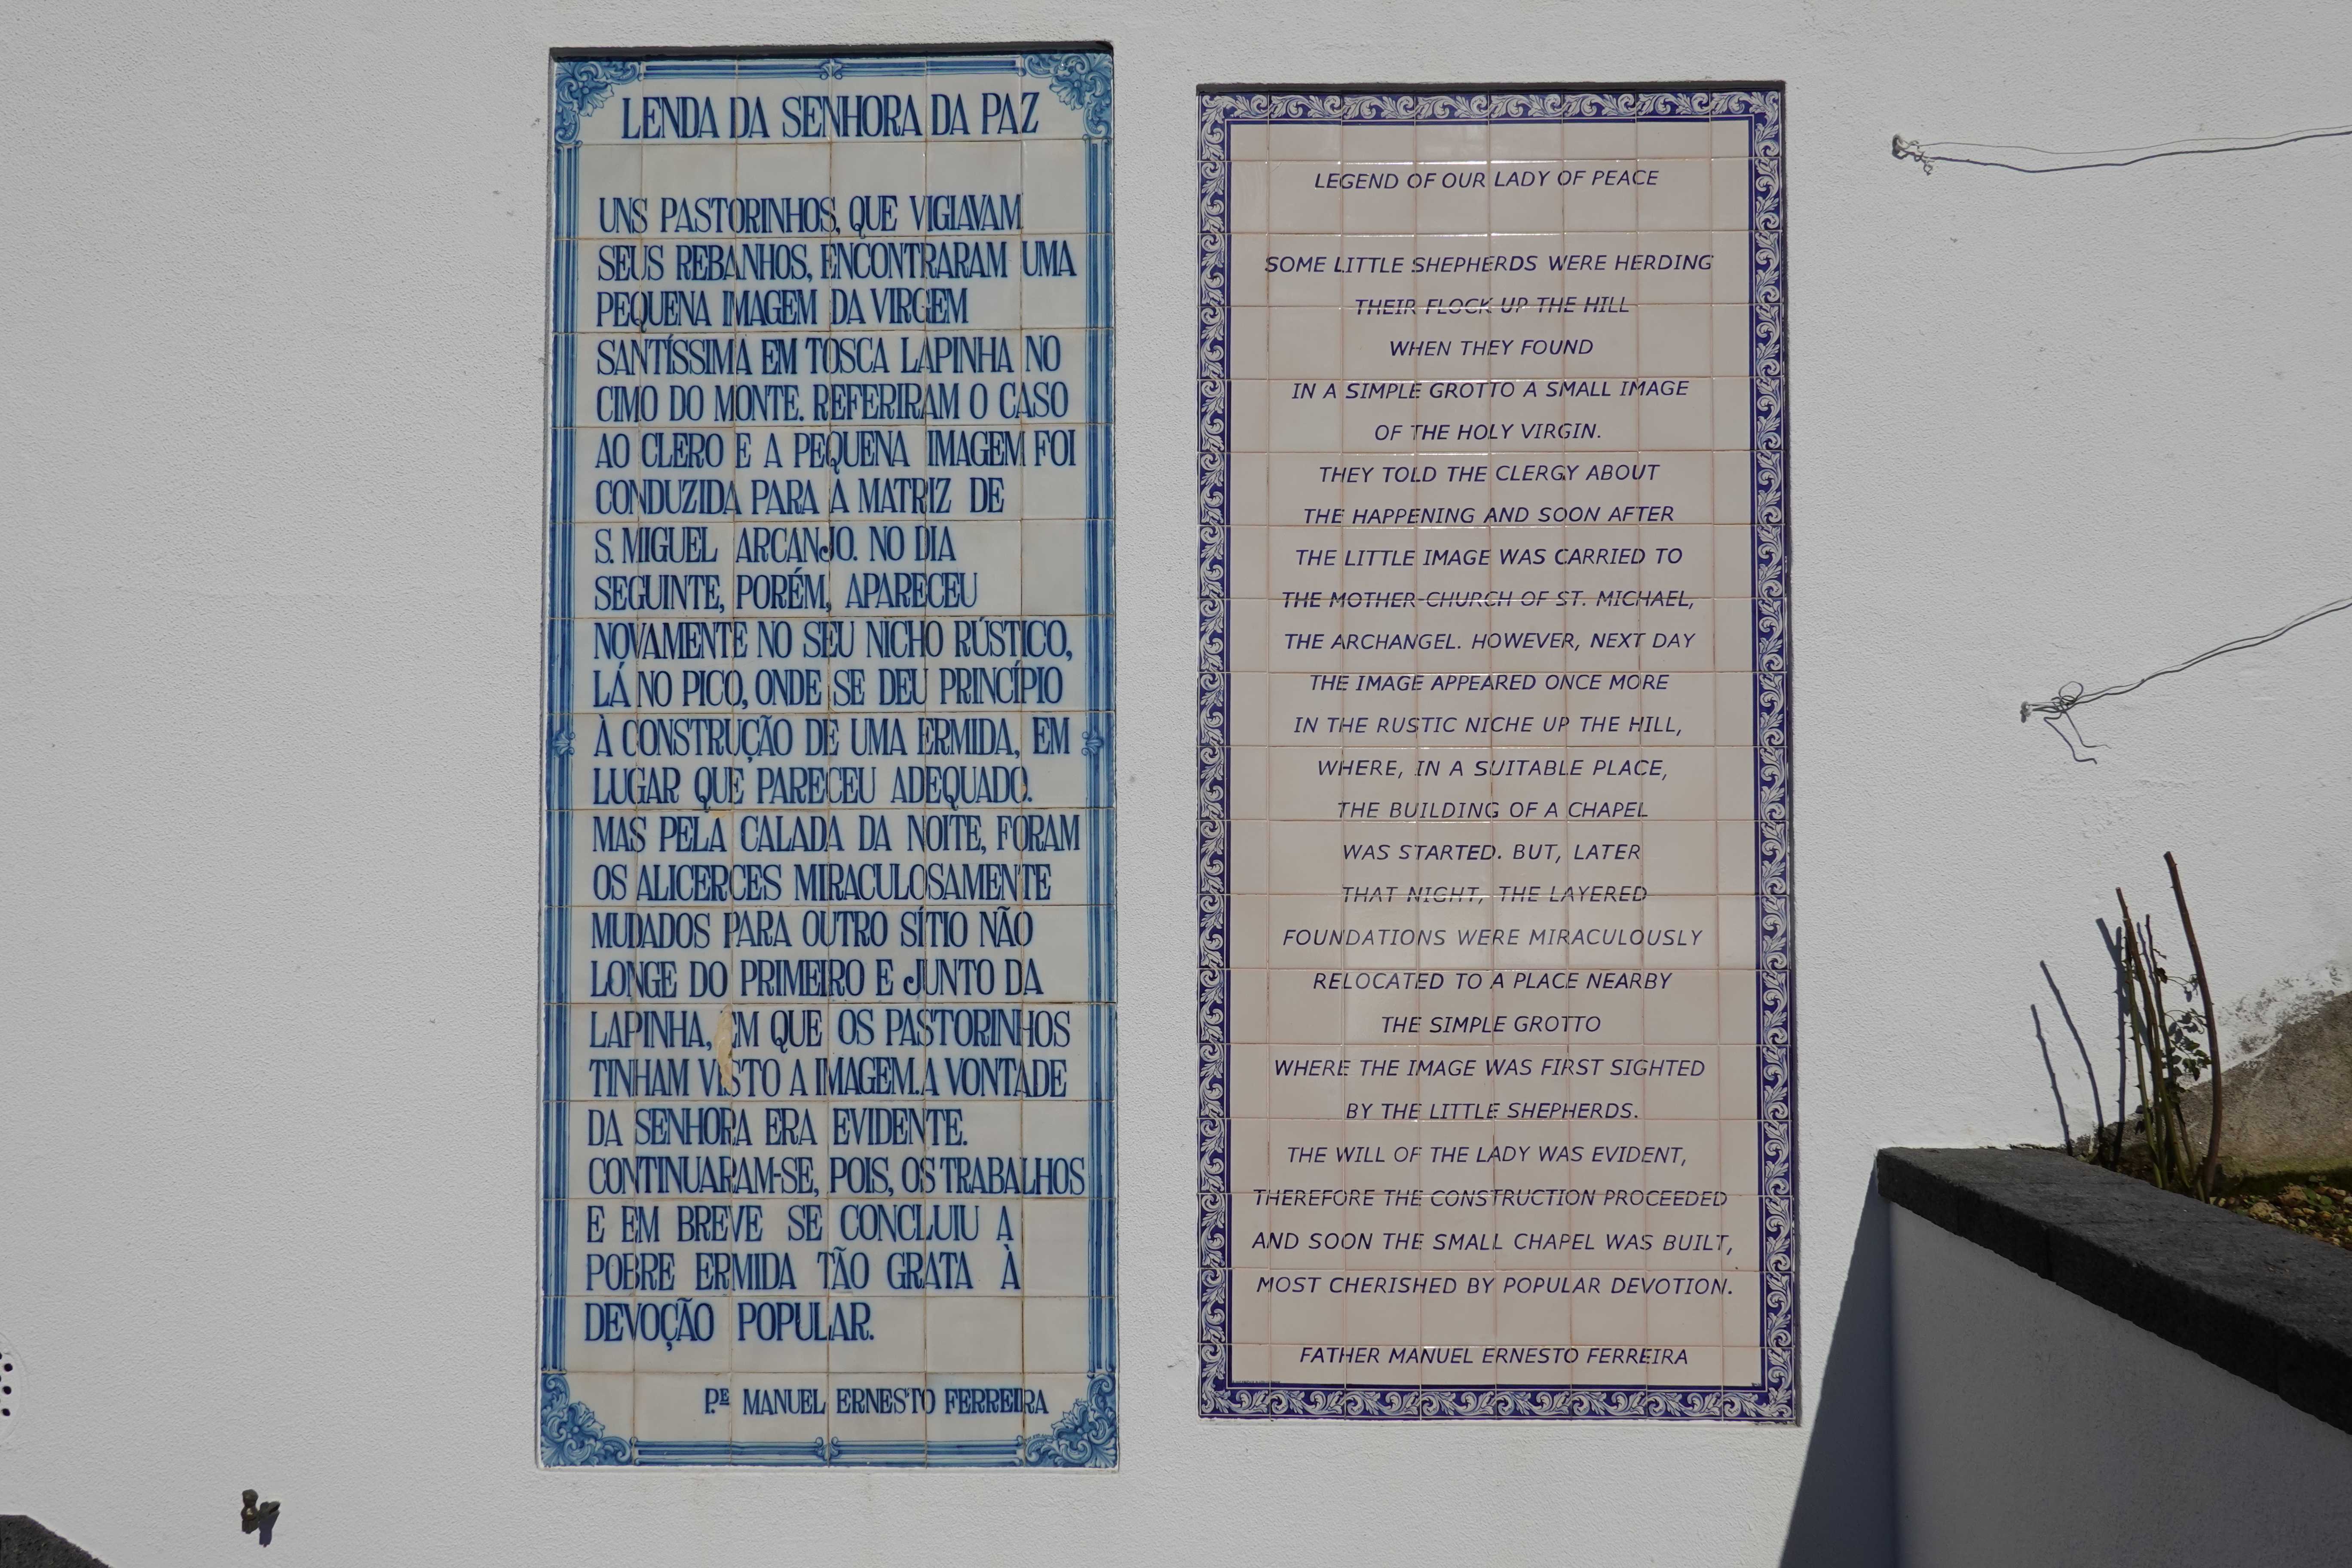 LENDA DA SENHORA DA PAZ
UNS PASTORINHOS, QUE VIGIAVAM
SEUS REBANHOS, ENCONTRARAM UMA
PEQUENA IMAGEM DA VIRGEM
SANTÍSSIMA EM TOSCA LAPINHA NO
CIMO DO MONTE. REFERIRAM O CASO
AO CLERO E A PEQUENA IMAGEM FOI
CONDUZIDA PARA A MATRIZ DE
S. MIGUEL ARCANJO. NO DIA
SEGUINTE, PORÉM, APARECEU
NOVAMENTE NO SEU NICHO RÚSTICO,
LÁ NO PICO, ONDE SE DEU PRINCÍPIO
À CONSTRUÇÃO DE UMA ERMIDA, EM
LUGAR QUE PARECEU ADEQUADO.
MAS PELA CALADA DA NOITE, FORAM
OS ALICERCES MIRACULOSAMENTE
MUDADOS PARA OUTRO SÍTIO NÃO
LONGE DO PRIMEIRO E JUNTO DA
LAPINHA, EM QUE OS PASTORINHOS
TINHAM VISTO A IMAGEM. A VONTADE
DA SENHORA ERA EVIDENTE.
CONTINUARAM-SE, POIS, OS TRABALHOS
E EM BREVE SE CONCLUIU A
POBRE ERMIDA TÃO GRATA À
DEVOÇÃO POPULAR.
P.E MANUEL ERNESTO FERREIRA
LEGEND OF OUR LADY OF PEACE
SOME LITTLE SHEPHERDS WERE HERDING
THEIR FLOCK UP THE HILL
WHEN THEY FOUND
IN A SIMPLE GROTTO A SMALL IMAGE
OF THE HOLY VIRGIN.
THEY TOLD THE CLERGY ABOUT
THE HAPPENING AND SOON AFTER
THE LITTLE IMAGE WAS CARRIED TO
THE MOTHER-CHURCH OF ST. MICHAEL,
THE ARCHANGEL. HOWEVER, NEXT DAY
THE IMAGE APPEARED ONCE MORE
IN THE RUSTIC NICHE UP THE HILL,
WHERE, IN A SUITABLE PLACE,
THE BUILDING OF A CHAPEL
WAS STARTED. BUT, LATER
THAT NIGHT, THE LAYERED
FOUNDATIONS WERE MIRACULOUSLY
RELOCATED TO A PLACE NEARBY
THE SIMPLE GROTTO
WHERE THE IMAGE WAS FIRST SIGHTED
BY THE LITTLE SHEPHERDS.
THE WILL OF THE LADY WAS EVIDENT,
THEREFORE THE CONSTRUCTION PROCEEDED
AND SOON THE SMALL CHAPEL WAS BUILT,
MOST CHERISHED BY POPULAR DEVOTION.
FATHER MANUEL ERNESTO FERREIRA